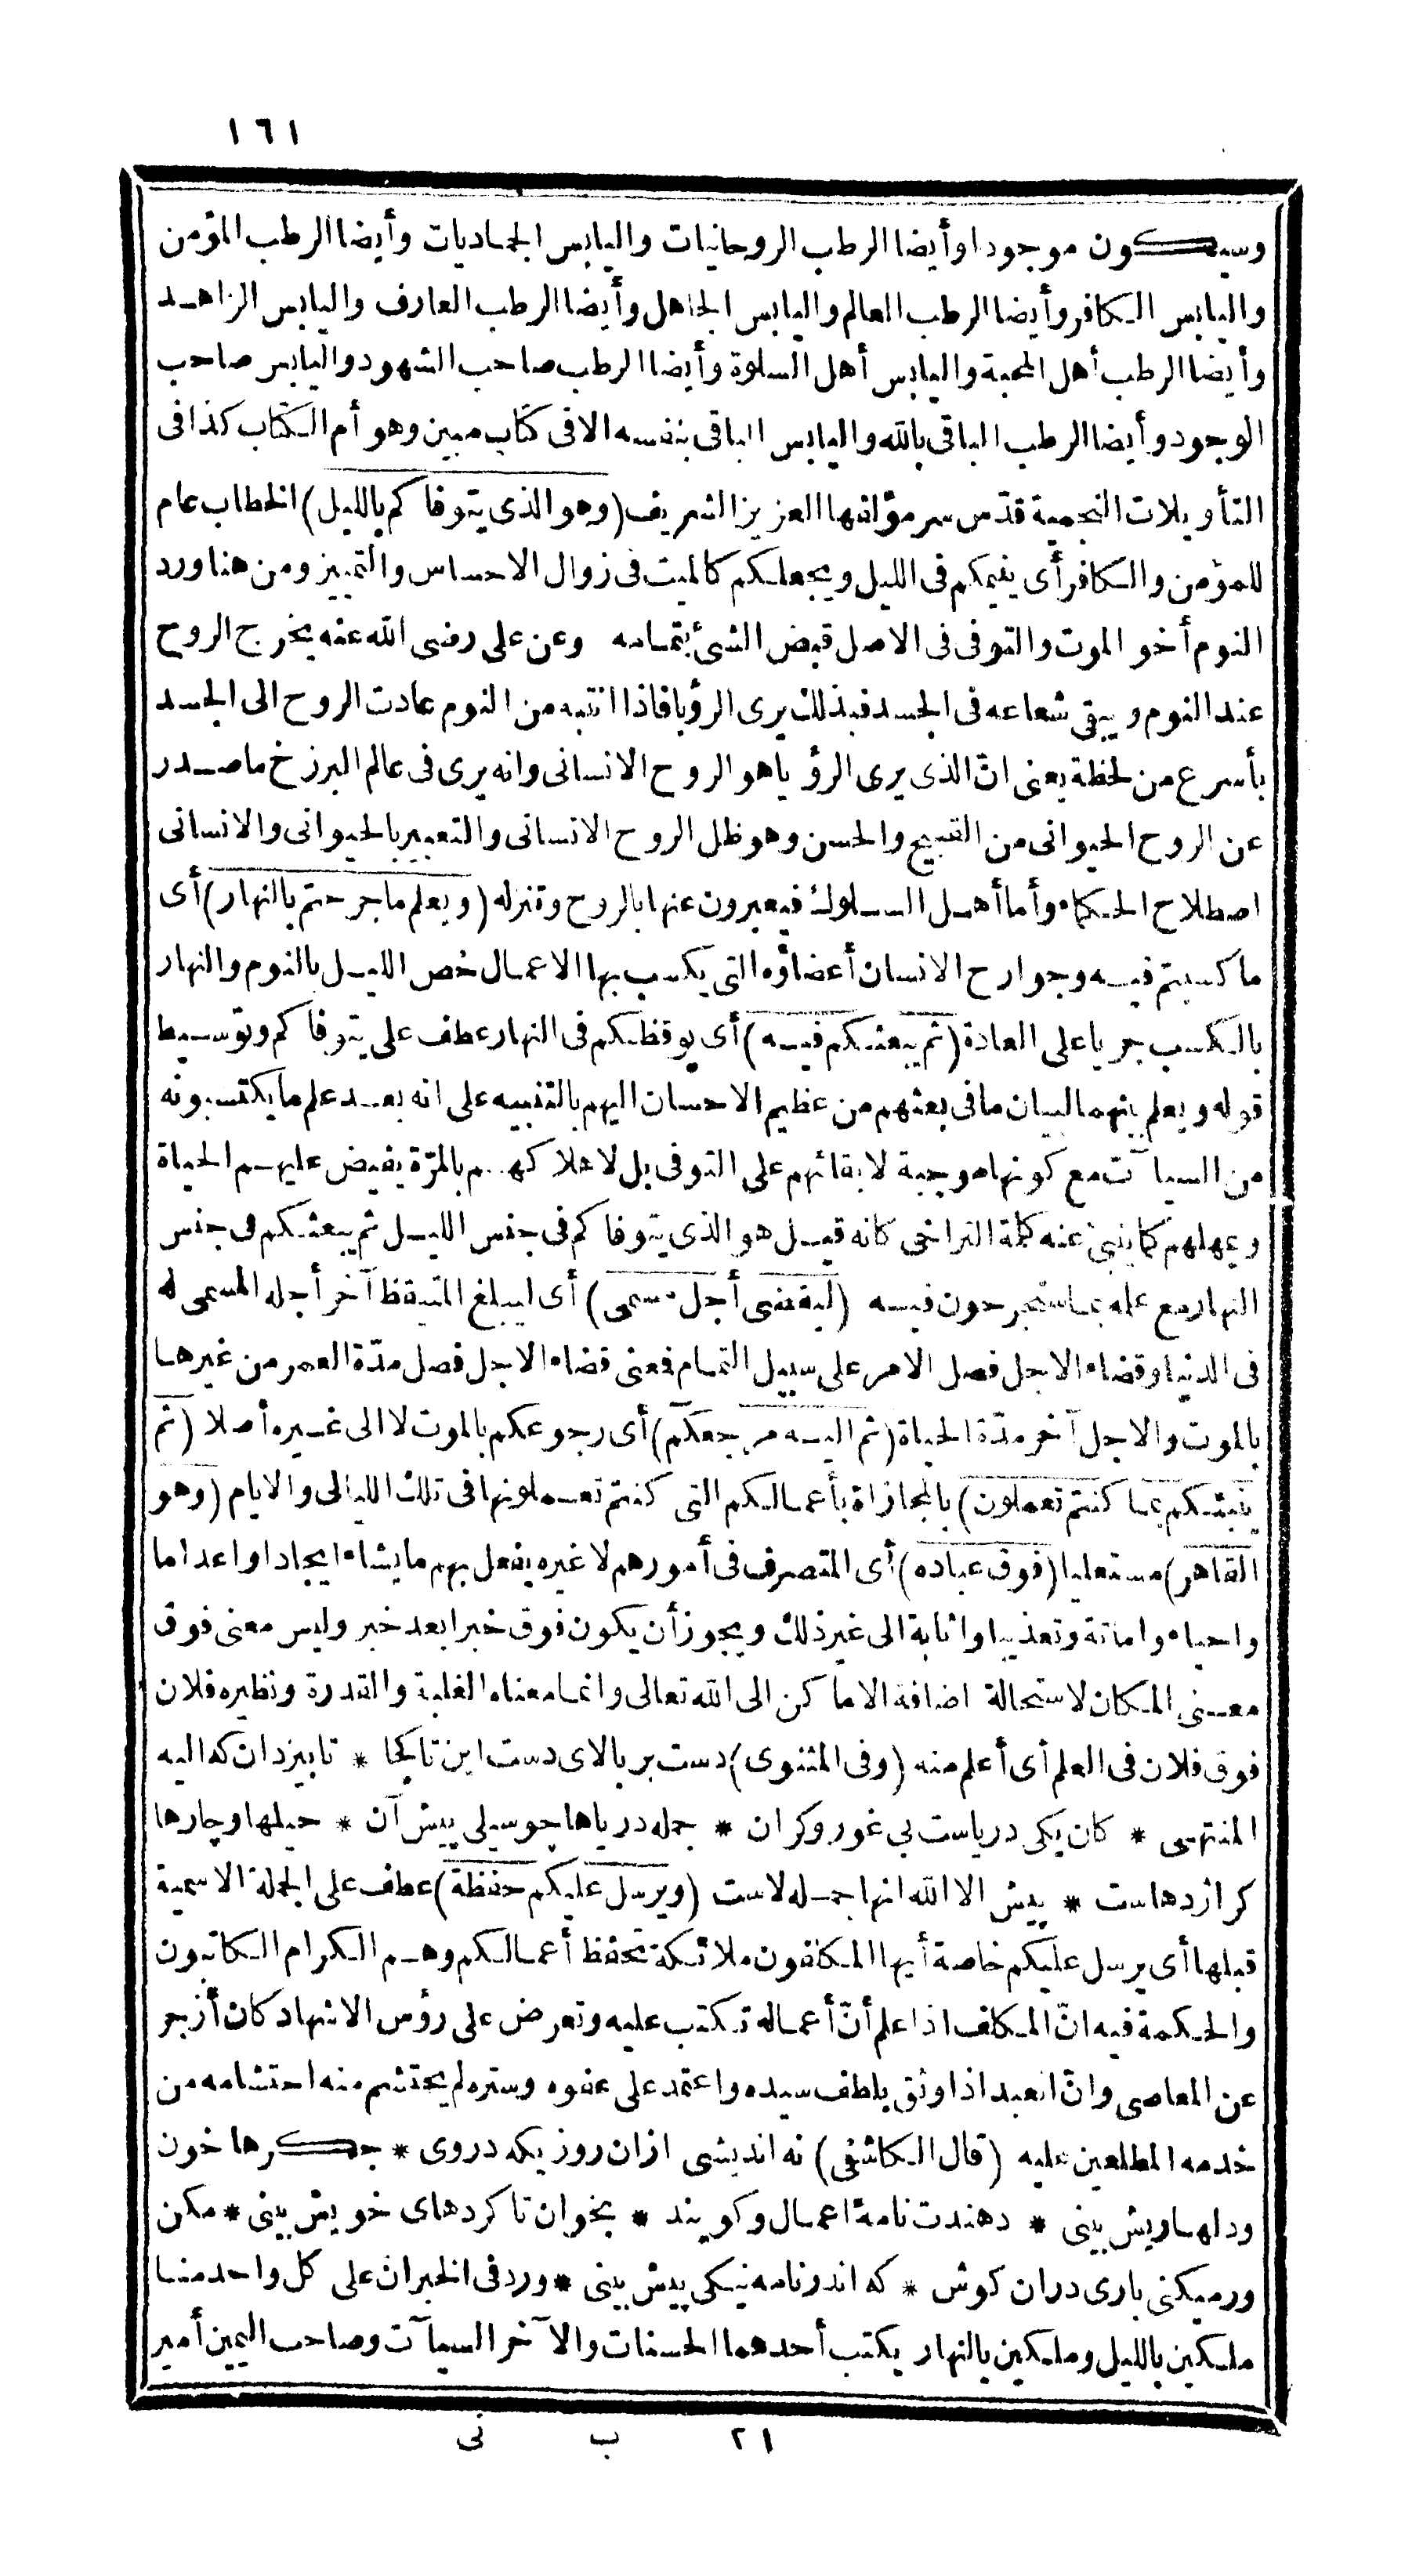 ١٦١
وسيكون موجودا وأيضا الرطب الروحانيات واليابس الجماديات وأيضا الرطب المؤمن
واليابس الكافر وأيضا الرطب العالم واليابس الجاهل وأيضا الرطب العارف واليابس الزاهد
وأيضا الرطب أهل المحبة واليابس أهل السلوة وأيضا الرطب صاحب الشهود واليابس صاحب
الوجود وأيضا الرطب الباقى بالله واليابس الباقى بنفسه الا فى كتاب مبين وهو أم الكتاب كذا فى
التأويلات النجمية قدّس سر مؤلفها العزيز الشريف (وهو الذى يتوفاكم بالليل) الخطاب عام
للمؤمن والكافر أى ينيمكم فى الليل ويجعلكم كالميت فى زوال الاحساس والتمييز ومن هنا ورد
النوم أخو الموت والتوفى فى الاصل قبض الشئ بتمامه وعن على رضى الله عنه يخرج الروح
عند النوم ويبقى شعاعه فى الجسد فبذلك يرى الرؤيا فاذا انتبه من النوم عادت الروح الى الجسد
بأسرع من لحظة يعنى انّ الذى يرى الرؤيا هو الروح الانسانى وانه يرى فى عالم البرزخ ما صدر
عن الروح الحيوانى من القبيح والحسن وهو ظل الروح الانسانى والتعبير بالحيوانى والانسانى
اصطلاح الحكماء وأما أهل السلوك فيعبرون عنها بالروح وتنزله (ويعلم ما جرحتم بالنهار) أى
ما كسبتم فيه وجوارح الانسان أعضاؤه التى يكسب بها الاعمال خص الليل بالنوم والنهار
بالكسب جريا على العادة (ثم يبعثكم فيه) أى يوقظكم فى النهار عطف على يتوفاكم وتوسيط
قوله ويعلم بينهما لبيان ما فى بعثهم من عظيم الاحسان اليهم بالتنبيه على انه بعد علم ما يكتسبونه
من السيآت مع كونها موجبة لابقائهم على التوفى بل لاهلاكهم بالمرّة يفيض عليهم الحياة
ويمهلهم كما ينبئ عنه كلمة التراخى كانه قيل هو الذى يتوفاكم فى جنس الليل ثم يبعثكم فى جنس
النهار مع علمه بما ستجرحون فيه (ليقضى أجل مسمى) أى ليبلغ المتيقظ آخر أجله المسمى له
فى الدنيا وقضاء الاجل فصل الامر على سبيل التمام فمعنى قضاء الاجل فصل مدّة العمر من غيرها
بالموت والاجل آخر مدّة الحياة (ثم اليه مرجعكم) أى رجوعكم بالموت لا الى غيره أصلا (ثم
ينبئكم بما كنتم تعملون) بالمجازاة بأعمالكم التى كنتم تعملونها فى تلك الليالى والايام (وهو
القاهر) مستعليا (فوق عباده) أى المتصرف فى أمورهم لا غيره يفعل بهم ما يشاء ايجادا واعداما
واحياء واماتة وتعذيبا واثابة الى غير ذلك ويجوز أن يكون فوق خبرا بعد خبر وليس معنى فوق
معنى المكان لاستحالة اضافة الاماكن الى الله تعالى وانما معناه الغلبة والقدرة ونظيره فلان
فوق فلان فى العلم أى أعلم منه (وفى المثنوى) دست بر بالاى دست اين تا كجا * تا بيزدان كه اليه
المنتهى * كان يكى درياست بى غور وكران * جمله درياها چو سيلى پيش آن * حيلها وچارها
كر اژدهاست * پيش الا الله انها جمله لاست (ويرسل عليكم حفظة) عطف على الجملة الاسمية
قبلها أى يرسل عليكم خاصة أيها المكلفون ملائكة تحفظ أعمالكم وهم الكرام الكاتبون
والحكمة فيه انّ المكلف اذا علم أنّ أعماله تكتب عليه وتعرض على رؤس الاشهاد كان أزجر
عن المعاصى وانّ العبد اذا وثق بلطف سيده واعتمد على عفوه وستره لم يحتشم منه احتشامه من
خدمه المطلعين عليه (قال الكاشفى) نه انديشى ازان روزيكه دروى * جكرها خون
ودلها ريش بينى * دهندت نامهٔ اعمال وكويند * بخوان تا كردهاى خويش بينى * مكن
ور ميكنى بارى دران كوش * كه اندر نامه نيكى پيش بينى * ورد فى الخبر ان على كل واحد منا
ملكين بالليل وملكين بالنهار يكتب أحدهما الحسنات والآخر السيآت وصاحب اليمين أمير
٢١ ب نى